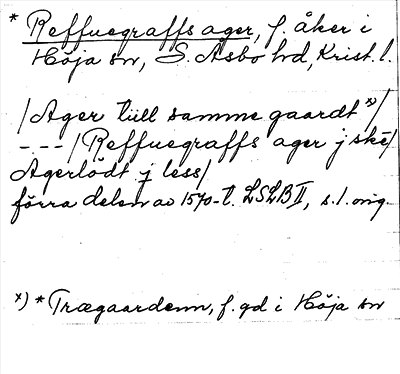 * Reffuegraffs ager, f. åker i
Höja sn, S. Åsbo hd, Krist. l.
/Ager tüll samme gaardt x)/
---/Reffuegraffs ager j skē/
Agerlödt j less/
förra delen av 1570-t. LSLB II, s. 1. orig.
x) * Trægaardenn, f. gd i Höja sn